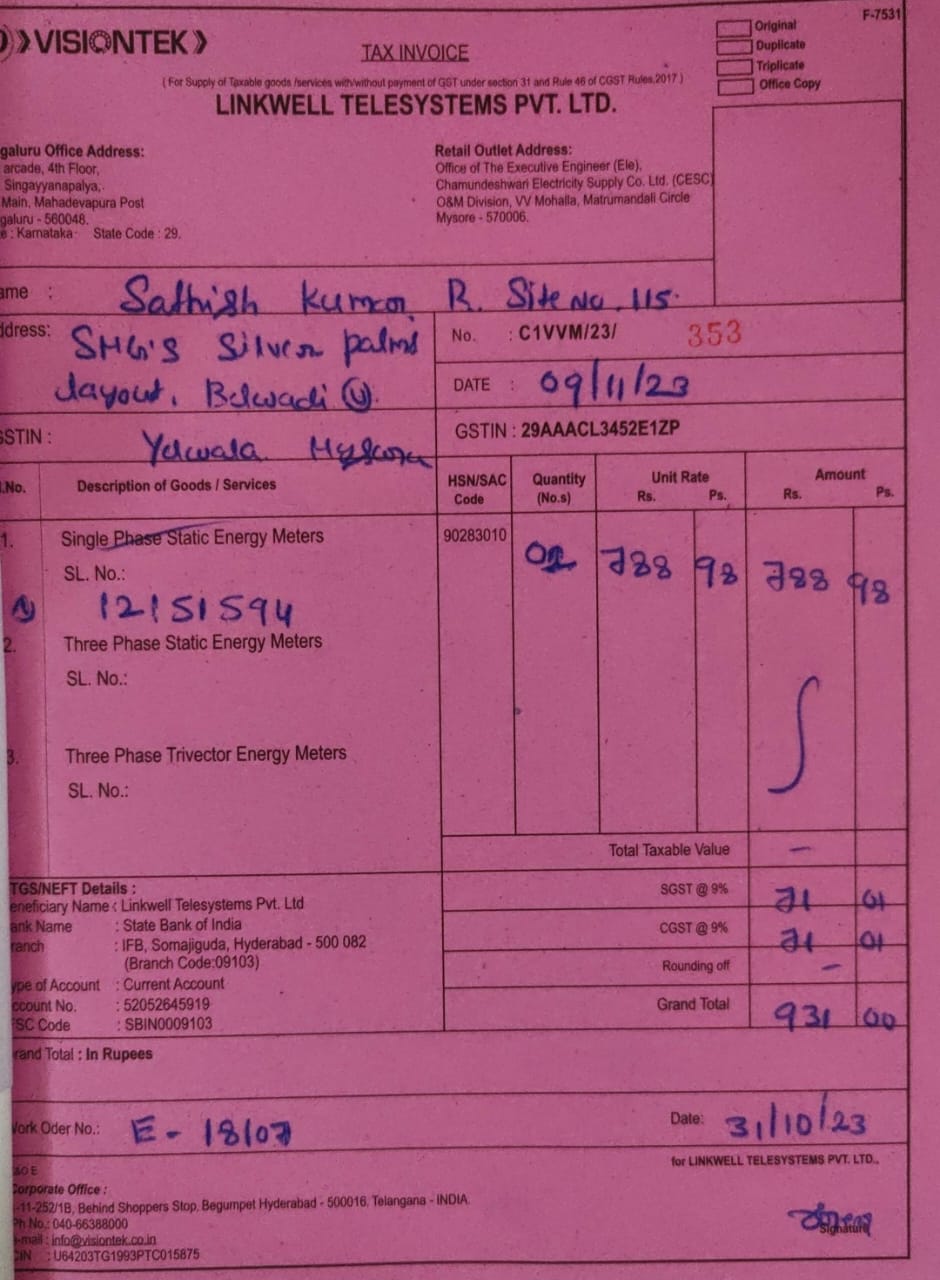 F-7531
VISIONTEK
TAX INVOICE
Original
Duplicate
Triplicate
Office Copy
( For Supply of Taxable goods /services with/without payment of GST under section 31 and Rule 46 of CGST Rules,2017 )
LINKWELL TELESYSTEMS PVT. LTD.
galuru Office Address:
arcade, 4th Floor,
Singayyanapalya,
Main, Mahadevapura Post
galuru - 560048.
e : Karnataka State Code : 29.
Retail Outlet Address:
Office of The Executive Engineer (Ele),
Chamundeshwari Electricity Supply Co. Ltd. (CESC)
O&M Division, VV Mohalla, Matrumandali Circle
Mysore - 570006.
ame : Sathish Kumar R. Site No 115.
ddress: SMG'S Silver palms
layout, Belwadi
No. : C1VVM/23/ 353
DATE : 09/11/23
GSTIN : 29AAACL3452E1ZP
STIN : Yelwala
.No. Description of Goods / Services HSN/SAC Code Quantity (No.s) Unit Rate Rs. Ps. Amount Rs. Ps.
1. Single Phase Static Energy Meters 90283010 788 98 788 98
SL. No.:
12151594
2. Three Phase Static Energy Meters
SL. No.:
3. Three Phase Trivector Energy Meters
SL. No.:
Total Taxable Value -
SGST @ 9% 71 01
CGST @ 9% 71 01
Rounding off -
Grand Total 931 00
TGS/NEFT Details :
eneficiary Name : Linkwell Telesystems Pvt. Ltd
ank Name : State Bank of India
ranch : IFB, Somajiguda, Hyderabad - 500 082
(Branch Code:09103)
ype of Account : Current Account
ccount No. : 52052645919
SC Code : SBIN0009103
rand Total : In Rupees
Work Oder No.: E - 18/07
Date: 31/10/23
for LINKWELL TELESYSTEMS PVT. LTD.,
&O E
Corporate Office :
-11-252/1B, Behind Shoppers Stop, Begumpet Hyderabad - 500016. Telangana - INDIA.
Ph No.: 040-66388000
e-mail : info@visiontek.co.in
CIN : U64203TG1993PTC015875
Signature